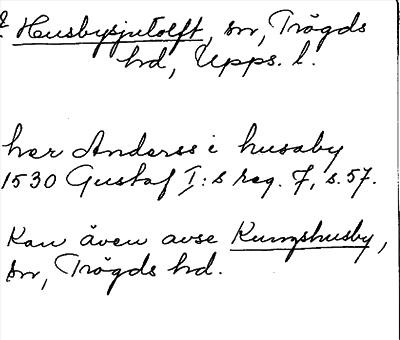 Husbysjutolft, sn, Trögds
hd, Upps. l.
her Anderss i husaby
1530 Gustaf I:s reg. 7, s. 57.
Kan även avse Kungshusby,
sn, Trögds hd.